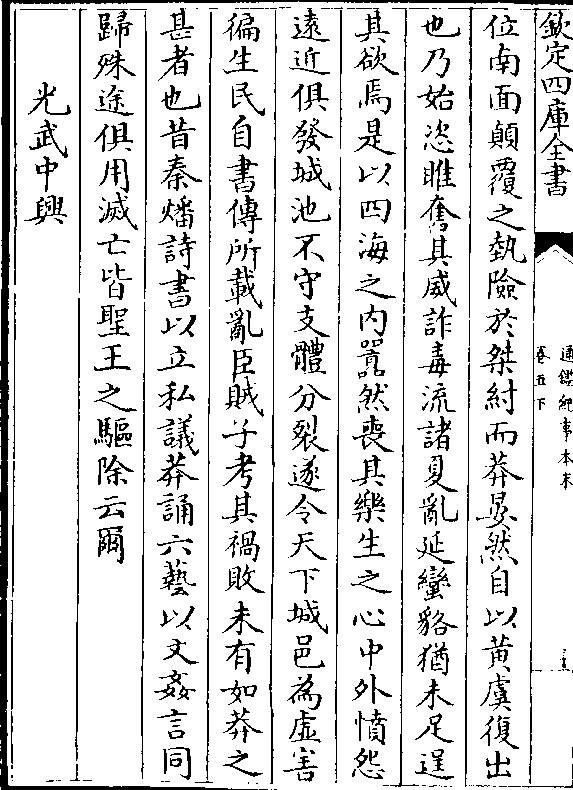 欽定四庫全書
通鑑紀事本末
卷五下
位南面顛覆之埶險於桀紂而莽晏然自以黃虞復出
也乃始恣睢奮其威詐毒流諸夏亂延蠻貉猶未足逞
其欲焉是以四海之內囂然喪其樂生之心中外憤怨
遠近俱發城池不守支體分裂遂令天下城邑為虛害
徧生民自書傳所載亂臣賊子考其禍敗未有如莽之
甚者也昔秦燔詩書以立私議莽誦六藝以文姦言同
歸殊途俱用滅亡皆聖王之驅除云爾
光武中興